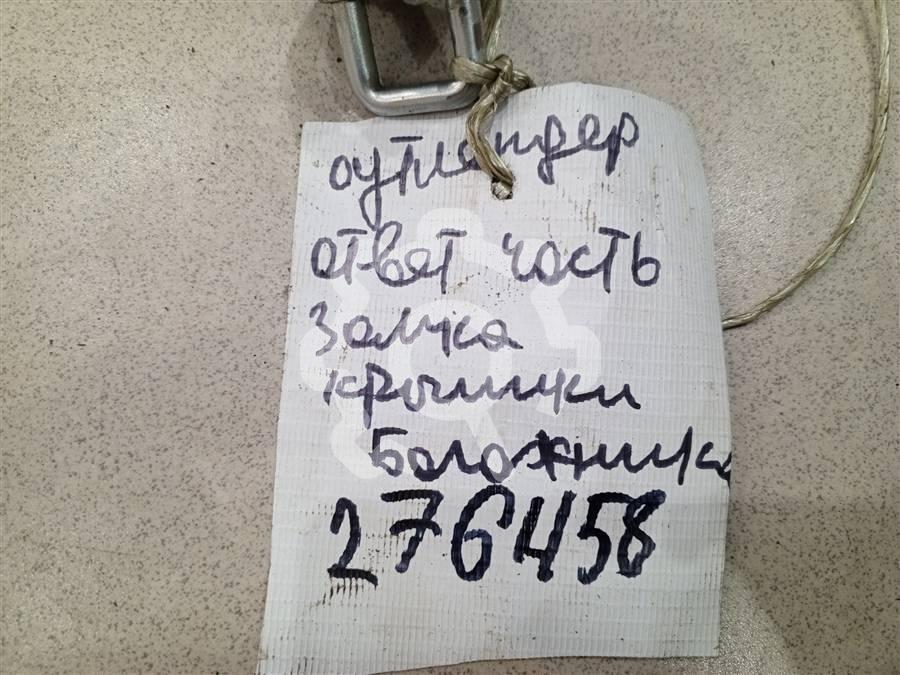 оутлендер
ответ часть
замка
крышки
багажника
276458